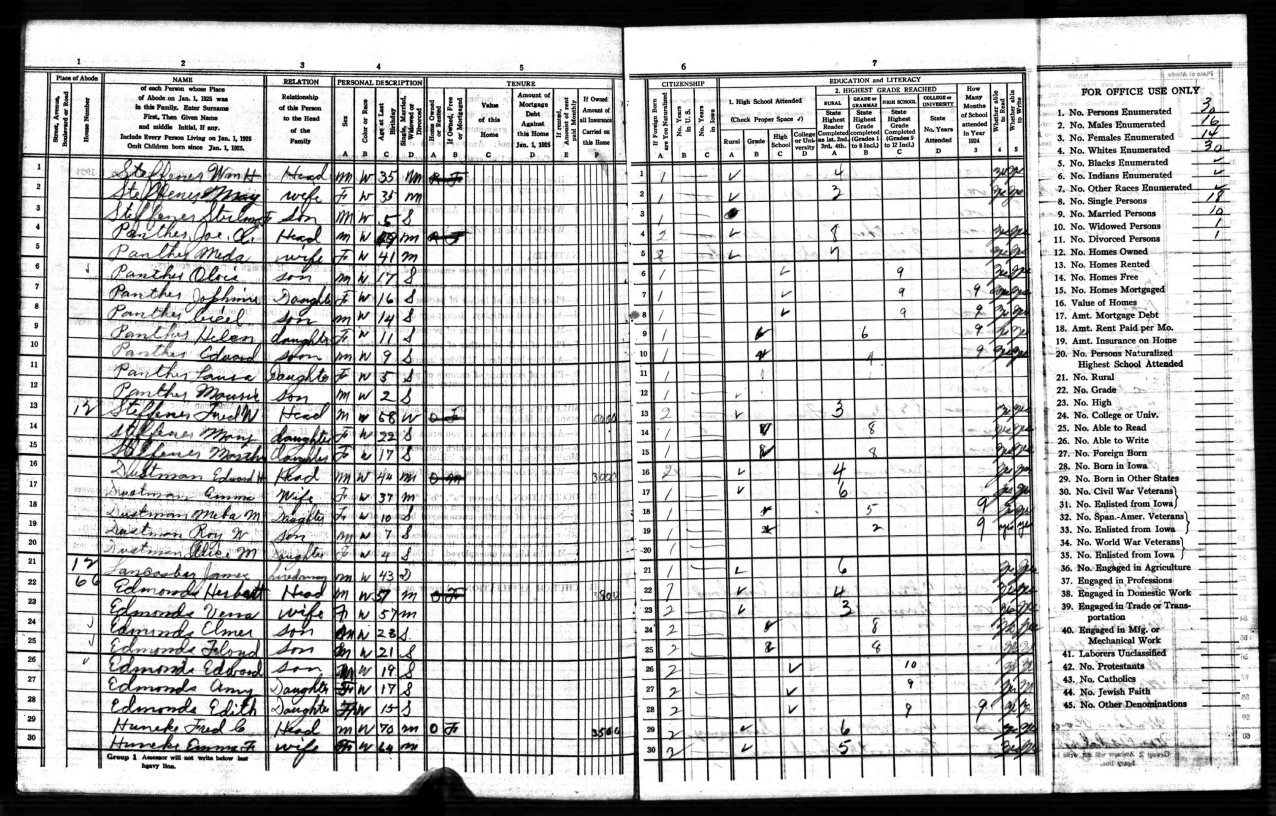 1 2 3 4 5 6 7
Place of Abode
Street, Avenue, Boulevard or Road
House Number
NAME
of each Person whose Place
of Abode on Jan. 1, 1925 was
in this Family. Enter Surname
First, Then Given Name
and middle Initial, if any.
Include Every Person Living on Jan. 1, 1925.
Omit Children born since Jan. 1, 1925.
RELATION
Relationship
of this Person
to the Head
of the
Family
PERSONAL DESCRIPTION
Sex
Color or Race
Age at Last Birthday
Single, Married, Widowed or Divorced
A B C D
TENURE
Home Owned or Rented
If Owned, Free or Mortgaged
Value
of this
Home
Amount of
Mortgage
Debt
Against
this Home
Jan. 1, 1925
If rented, Amount of rent paid Monthly
If Owned
Amount of
all Insurance
Carried on
this Home
A B C D E F
CITIZENSHIP
If Foreign Born are You Naturalized
No. Years in U.S.
No. Years in Iowa
A B C
EDUCATION and LITERACY
1. High School Attended
(Check Proper Space √)
Rural
Grade
High School
College or University
A B C D
2. HIGHEST GRADE REACHED
RURAL
State Highest Reader Completed as 1st, 2nd, 3rd, 4th.
GRADE or GRAMMAR
State Highest Grade completed (Grades 1 to 8 Incl.)
HIGH SCHOOL
State Highest Grade Completed (Grades 9 to 12 Incl.)
COLLEGE or UNIVERSITY
State No. Years Attended
A B C D
How Many Months of School attended in Year 1924
3
Whether able to Read
4
Whether able to Write
5
1 Steffener Wm H Head M W 35 M 1 √ 4
2 Steffener May wife F W 35 M 1 √ 3
3 Steffener son M W 5 S 1
4 Panther Joe Head M W M 2 √ 8
5 Panther Meda wife F W 41 M √ 7
6 Panther son M W 17 S 1 √ 9
7 Panther Daughter F W 16 S 1 √ 9 9
8 Panther Cecil son M W 14 S 1 √ 9 9
9 Panther Helen daughter F W 11 S 1 √ 6 9
10 Panther Edward son M W 9 S 1 √ 9
11 Panther Laura Daughter F W 5 S 1
12 Panther son M W 2 S 1
13 12 Steffener Fred W Head M W 68 W O F 2 √ 3
14 Steffener daughter F W 22 S 1 √ 8
15 Steffener daughter F W 17 S 1 √ 8
16 Dustman Edward H Head M W 44 M O M 3000 2 √ 4
17 Dustman Emma Wife F W 37 M 1 √ 6
18 Dustman Meta M Daughter F W 10 S 1 √ 5 9
19 Dustman Roy W son M W 7 S 1 √ 2 9
20 Dustman Alice M Daughter F W 4 S 1
21 12 Lancaster James hired man M W 43 D 1 √ 6
22 66 Edmonds Herbert Head M W 57 M O F √ 4
23 Edmonds Verna wife F W 57 M 2 √ 3
24 Edmonds Elmer son M W 23 S 2 √ 8
25 Edmonds Floyd son M W 21 S 2 √ 8
26 Edmonds Edward son M W 19 S 2 √ 10
27 Edmonds Amy Daughter F W 17 S 2 √ 9
28 Edmonds Edith Daughter F W 15 S 2 √ 9 9
29 Huneke Fred C Head M W 70 M O F 3500 2 √ 6
30 Huneke Emma F wife F W 64 M 2 √ 5
Group 1 Assessor will not write below last
heavy line.
FOR OFFICE USE ONLY
1. No. Persons Enumerated 30
2. No. Males Enumerated 16
3. No. Females Enumerated 14
4. No. Whites Enumerated 30
5. No. Blacks Enumerated √
6. No. Indians Enumerated √
7. No. Other Races Enumerated √
8. No. Single Persons 18
9. No. Married Persons 10
10. No. Widowed Persons 1
11. No. Divorced Persons 1
12. No. Homes Owned
13. No. Homes Rented
14. No. Homes Free
15. No. Homes Mortgaged
16. Value of Homes
17. Amt. Mortgage Debt
18. Amt. Rent Paid per Mo.
19. Amt. Insurance on Home
20. No. Persons Naturalized
Highest School Attended
21. No. Rural
22. No. Grade
23. No. High
24. No. College or Univ.
25. No. Able to Read
26. No. Able to Write
27. No. Foreign Born
28. No. Born in Iowa
29. No. Born in Other States
30. No. Civil War Veterans
31. No. Enlisted from Iowa
32. No. Span.-Amer. Veterans
33. No. Enlisted from Iowa
34. No. World War Veterans
35. No. Enlisted from Iowa
36. No. Engaged in Agriculture
37. Engaged in Professions
38. Engaged in Domestic Work
39. Engaged in Trade or Trans-
portation
40. Engaged in Mfg. or
Mechanical Work
41. Laborers Unclassified
42. No. Protestants
43. No. Catholics
44. No. Jewish Faith
45. No. Other Denominations